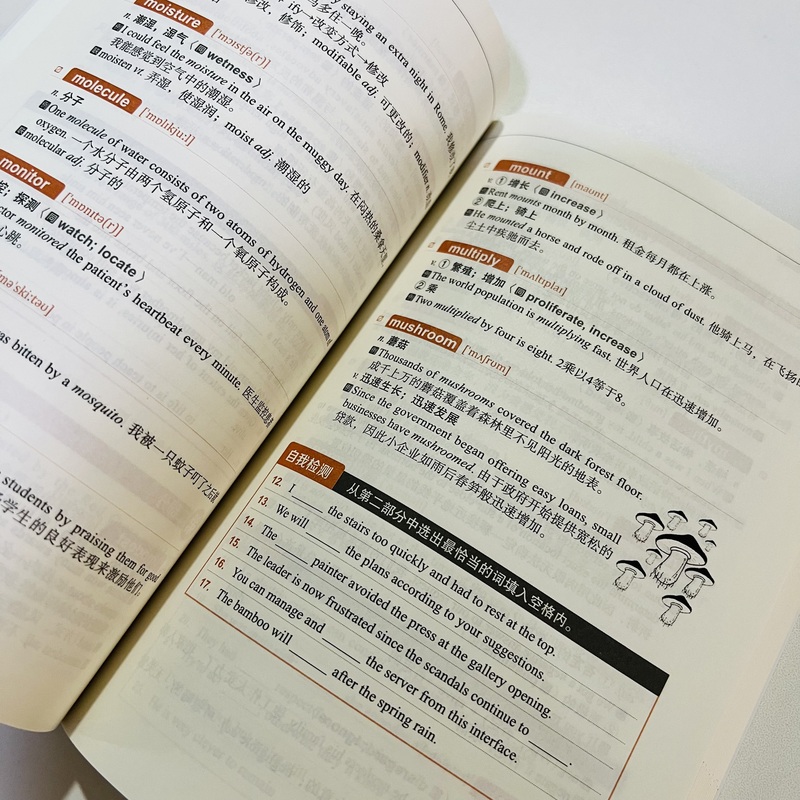 staying an extra night in Rome.
马多住一晚。
修改，修饰；modifiable adj. 可更改的；modifier n.
ify→改变方式→修改
moisture ['mɔɪstʃə(r)]
n. 潮湿；湿气〈同 wetness〉
I could feel the moisture in the air on the muggy day. 在闷热的
我能感觉到空气中的潮湿。
moisten vt. 弄湿，使湿润；moist adj. 潮湿的
molecule ['mɒlɪkjuːl]
n. 分子
One molecule of water consists of two atoms of hydrogen and one atom of
oxygen. 一个水分子由两个氢原子和一个氧原子构成。
molecular adj. 分子的
monitor ['mɒnɪtə(r)]
探测〈同 watch; locate〉
monitored the patient's heartbeat every minute. 医生监控
心跳。
was bitten by a mosquito. 我被一只蚊子叮了之后
students by praising them for good
学生的良好表现来激励他们。
mount [maunt]
v. ①增长〈同 increase〉
Rent mounts month by month. 租金每月都在上涨。
②爬上；骑上
He mounted a horse and rode off in a cloud of dust. 他骑上马，在飞扬的
尘土中疾驰而去。
multiply ['mʌltɪplaɪ]
v. ①繁殖；增加〈同 proliferate, increase〉
The world population is multiplying fast. 世界人口在迅速增加。
②乘
Two multiplied by four is eight. 2乘以4等于8。
mushroom ['mʌʃrʊm]
n. 蘑菇
Thousands of mushrooms covered the dark forest floor.
成千上万的蘑菇覆盖着森林里不见阳光的地表。
v. 迅速生长；迅速发展
Since the government began offering easy loans, small
businesses have mushroomed. 由于政府开始提供宽松的
贷款，因此小企业如雨后春笋般迅速增加。
自我检测 从第二部分中选出最恰当的词填入空格内。
12. I ____ the stairs too quickly and had to rest at the top.
13. We will ____ the plans according to your suggestions.
14. The ____ painter avoided the press at the gallery opening.
15. The leader is now frustrated since the scandals continue to ____.
16. You can manage and ____ the server from this interface.
17. The bamboo will ____ after the spring rain.